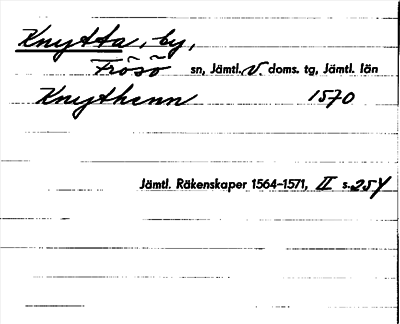 Knytta, by,
Frösö sn, Jämtl. V. doms. tg, Jämtl. län
Knythenn 1570
Jämtl. Räkenskaper 1564–1571, II s. 254